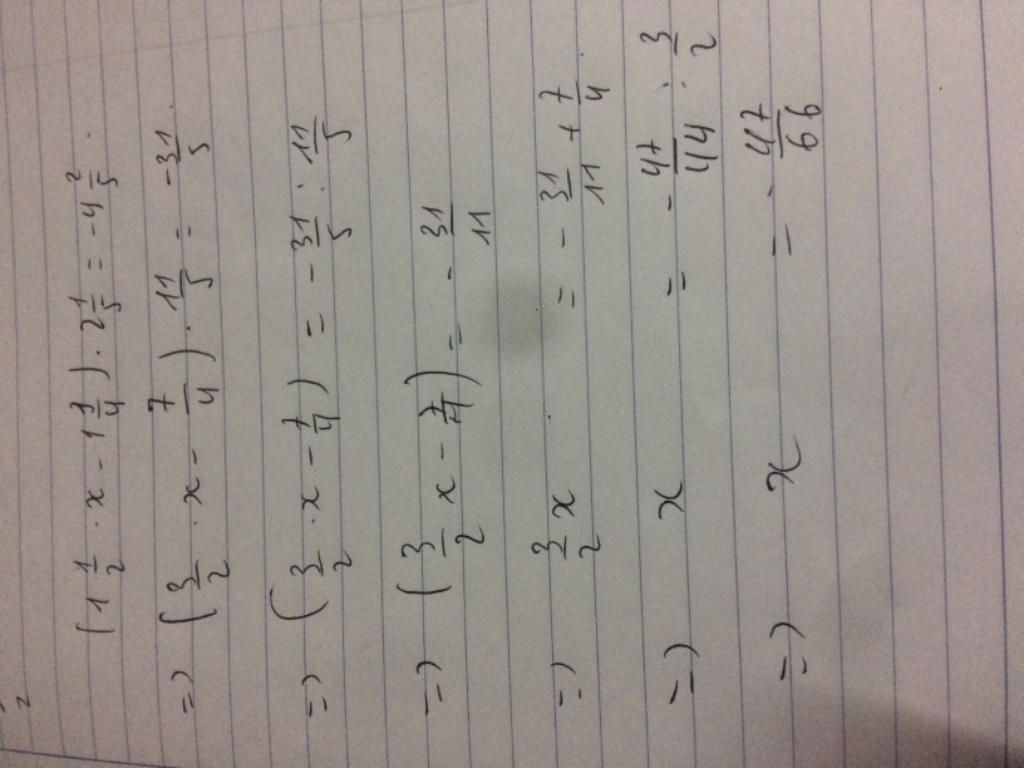 (1 1/2 · x - 1 3/4) · 2 1/5 = -4 2/5 .
=> (3/2 · x - 7/4) · 11/5 = -31/5 .
=> (3/2 · x - 7/4) = -31/5 : 11/5
=> (3/2 x - 7/4) = -31/11
=> 3/2 x = -31/11 + 7/4 .
=> x = -47/44 : 3/2
=> x = -47/66